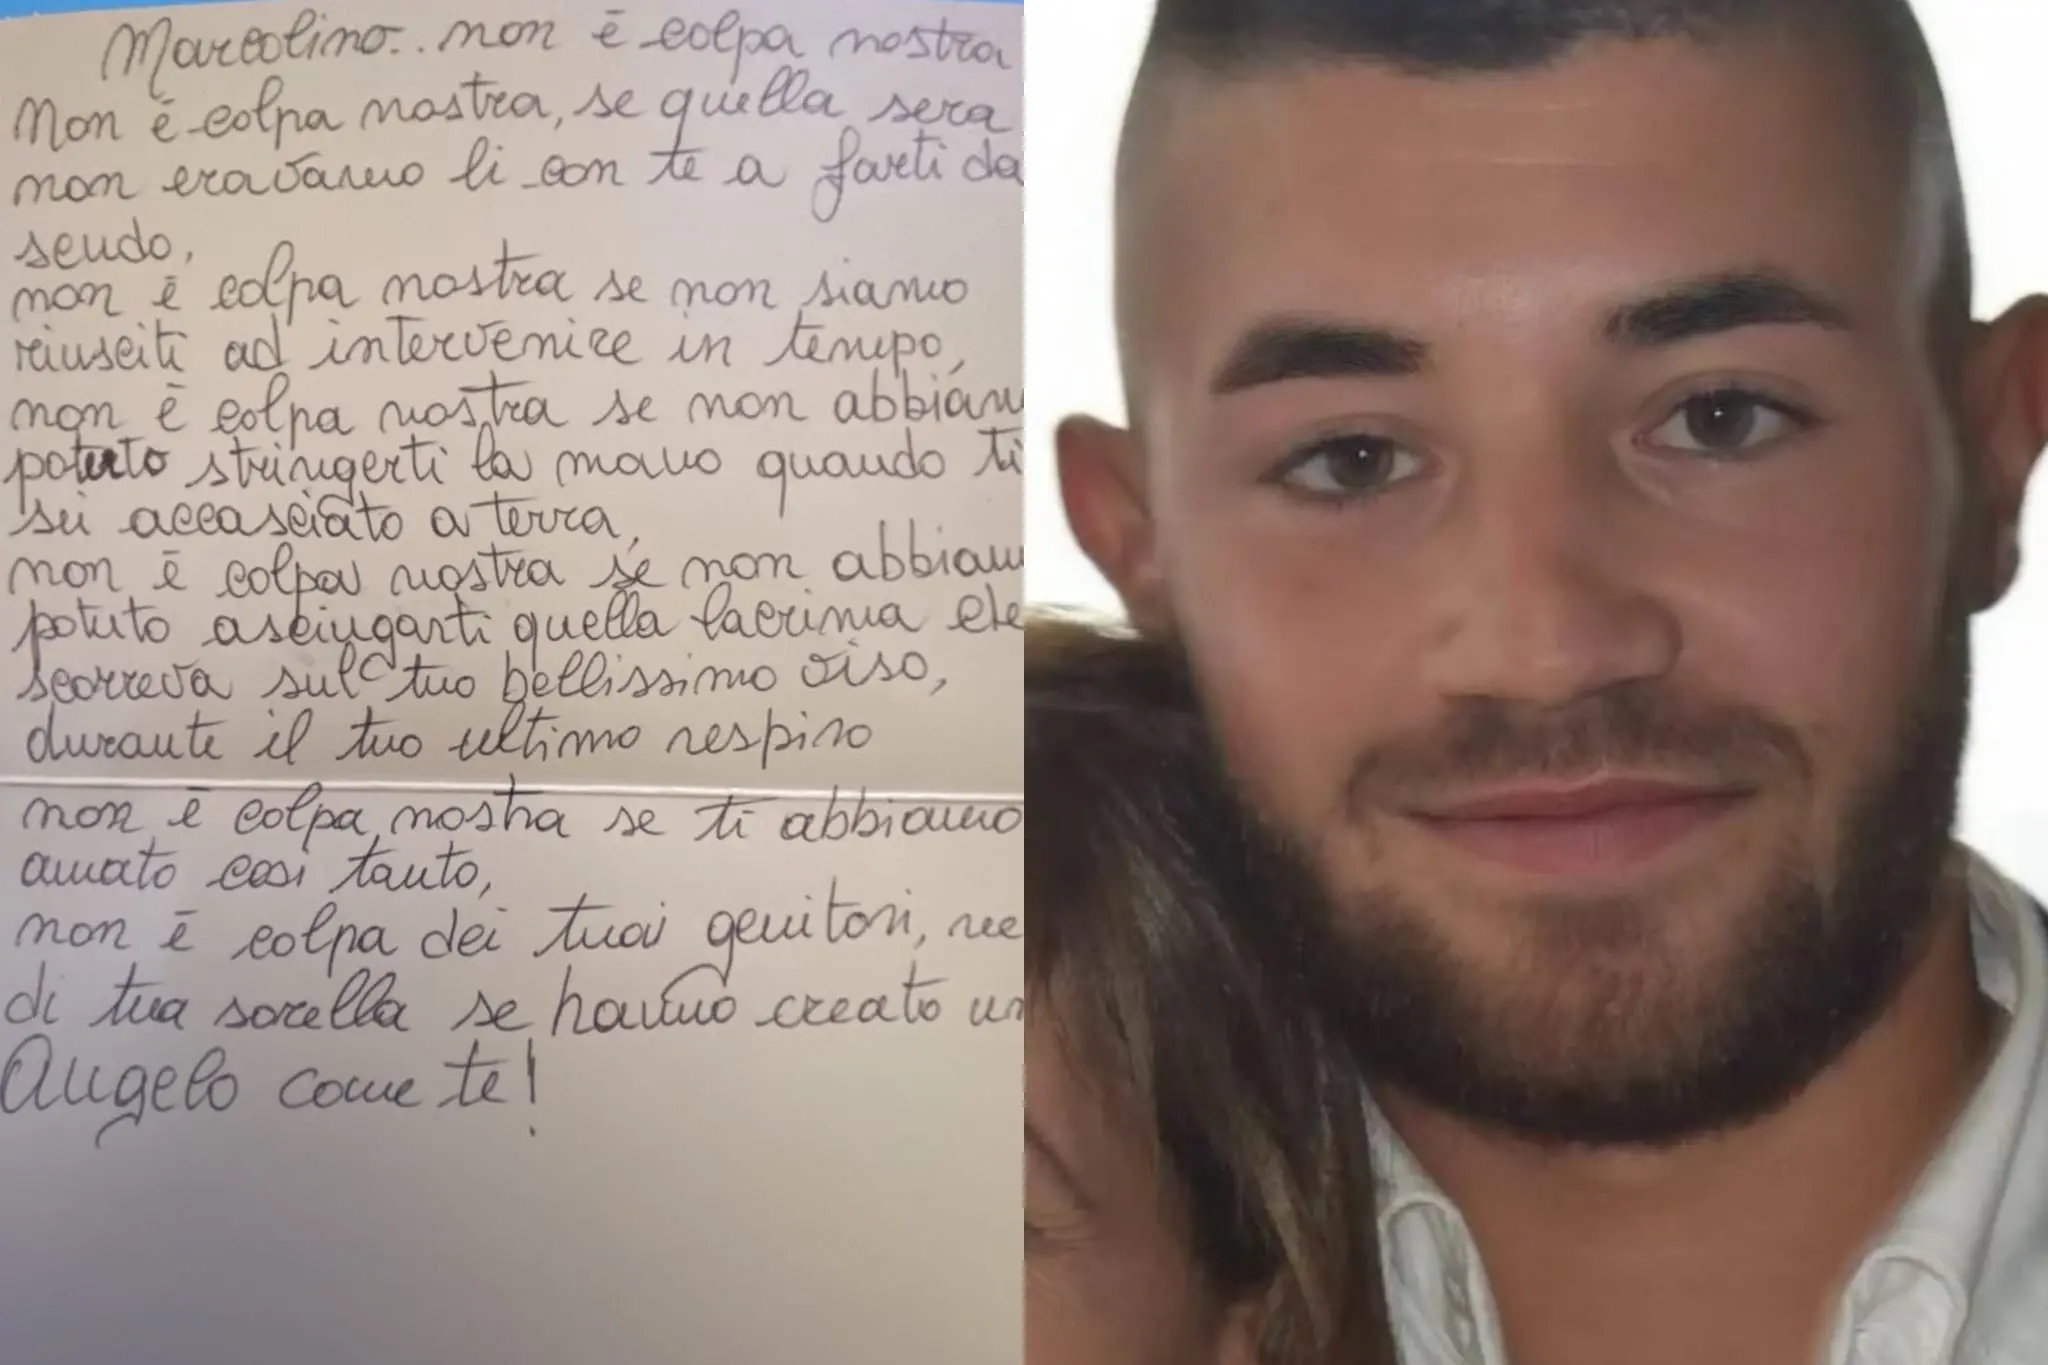 Marcolino.. non è colpa nostra
Non è colpa nostra, se quella sera
non eravamo li con te a farti da
scudo,
non è colpa nostra se non siamo
riusciti ad intervenire in tempo,
non è colpa nostra se non abbiam
potuto stringerti la mano quando ti
sei accasciato a terra,
non è colpa nostra se non abbiam
potuto asciugarti quella lacrima che
scorreva sul tuo bellissimo viso,
durante il tuo ultimo respiro
non è colpa nostra se ti abbiamo
amato così tanto,
non è colpa dei tuoi genitori, ne
di tua sorella se hanno creato un
Angelo come te!